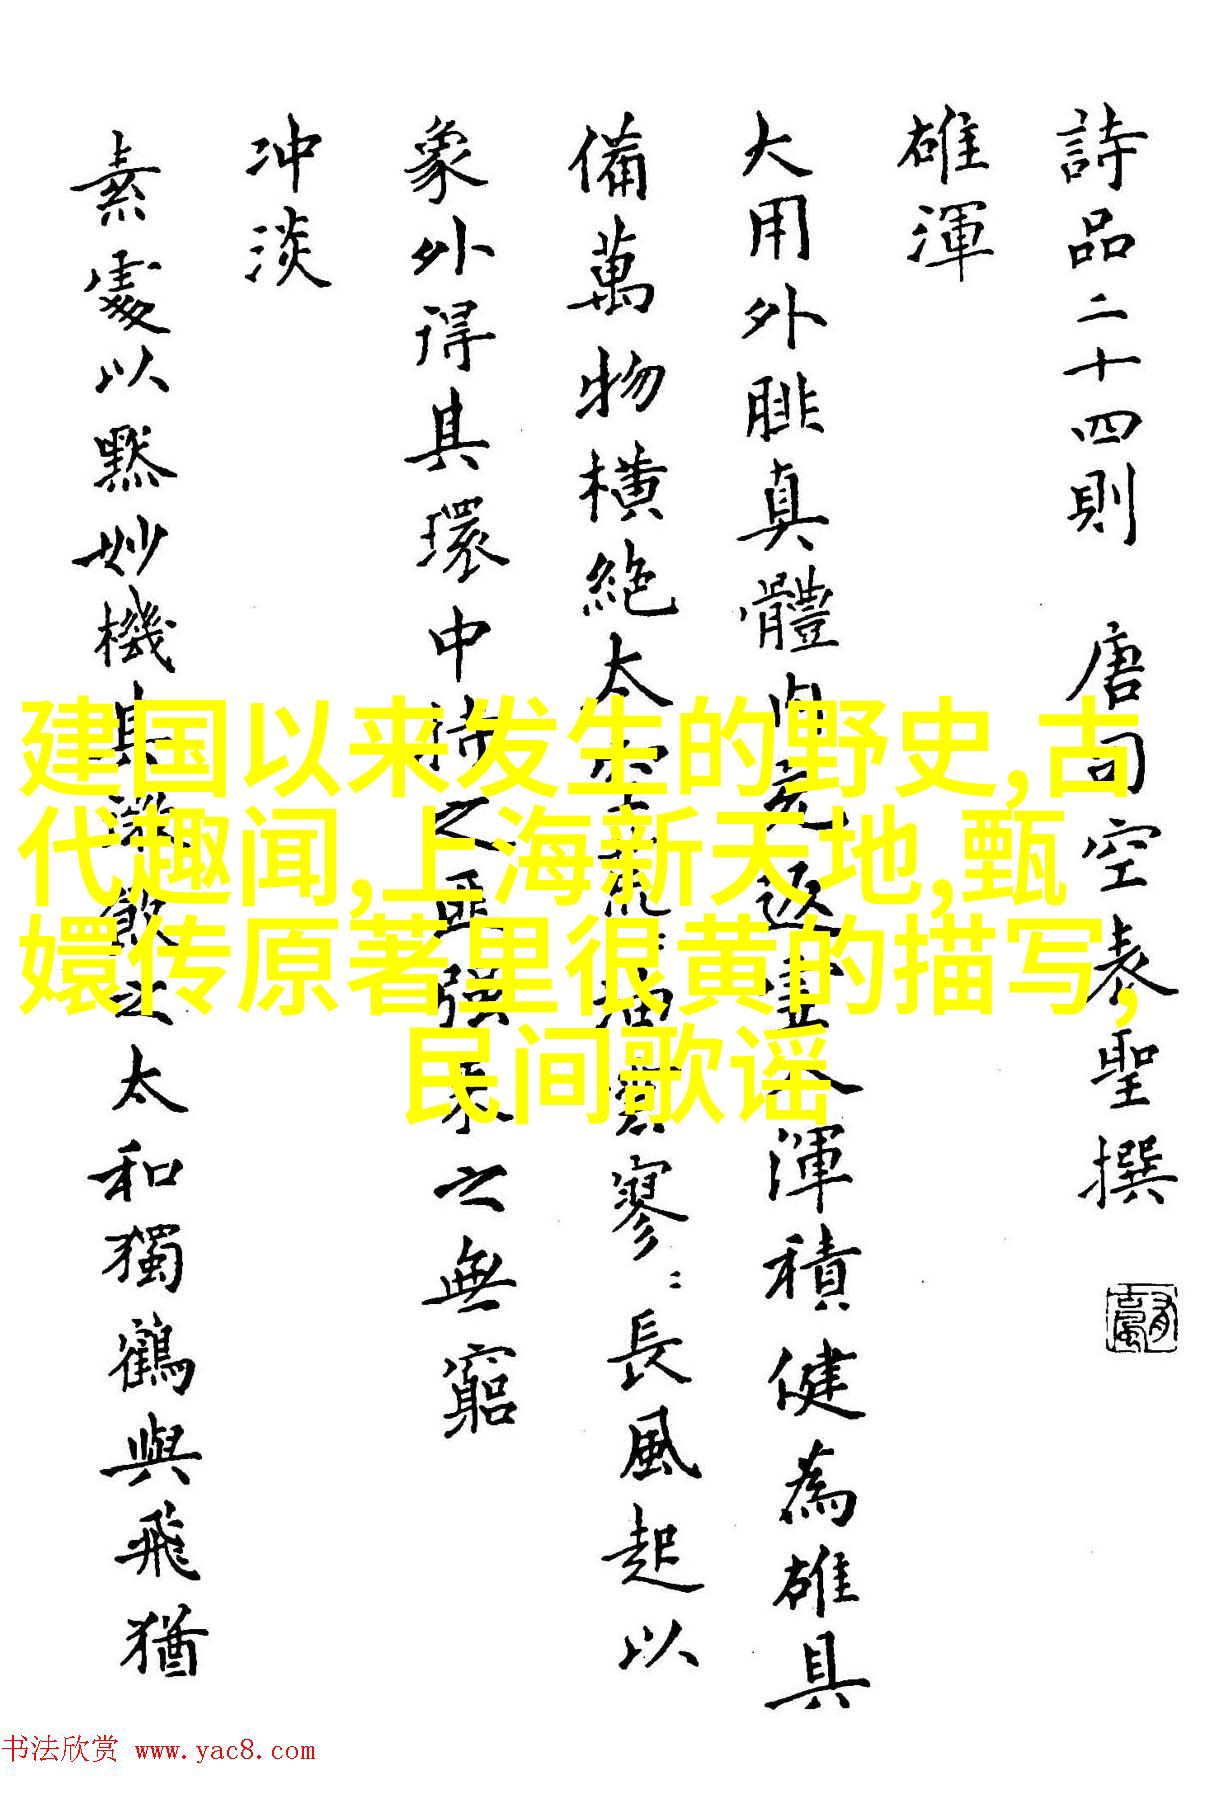 詩品二十四則 唐司空表聖撰
雄渾
大用外腓真體内充返虛入渾積健為雄具
備萬物橫絕太空荒荒油雲寥〻長風起以
象外得其環中持之匪强來之無窮
冲淡
素處以默妙機其微飲之太和獨鶴與飛猶
建国以来发生的野史,古
代趣闻,上海新天地,甄
嬛传原著里很黄的描写,
民间歌谣
书法欣赏 www.yac8.com